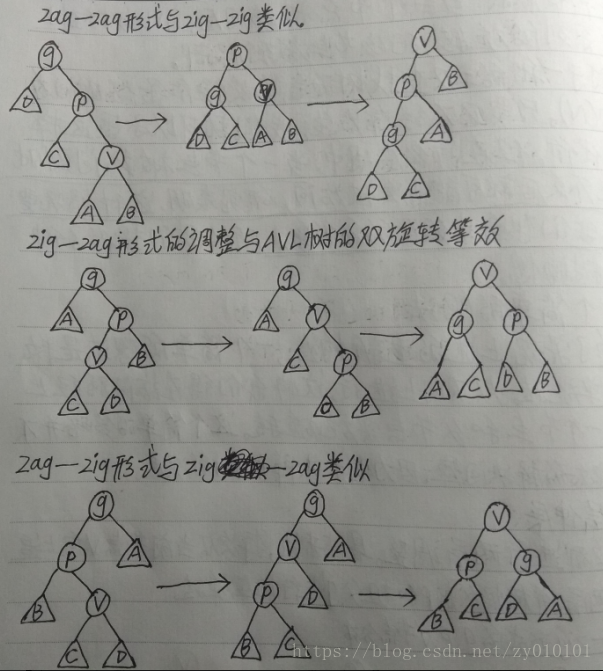 zag-zag形式与zig-zig类似.
g P V
D P g V P B
C V D C A B g A
A B D C
zig-zag形式的调整与AVL树的双旋转等效
g g V
A P A V g P
V B C P A C D B
C D D B
zag-zig形式与zig-zag类似
g g V
P A V A P g
B V P D B C D A
C D B C
https://blog.csdn.net/zy010101